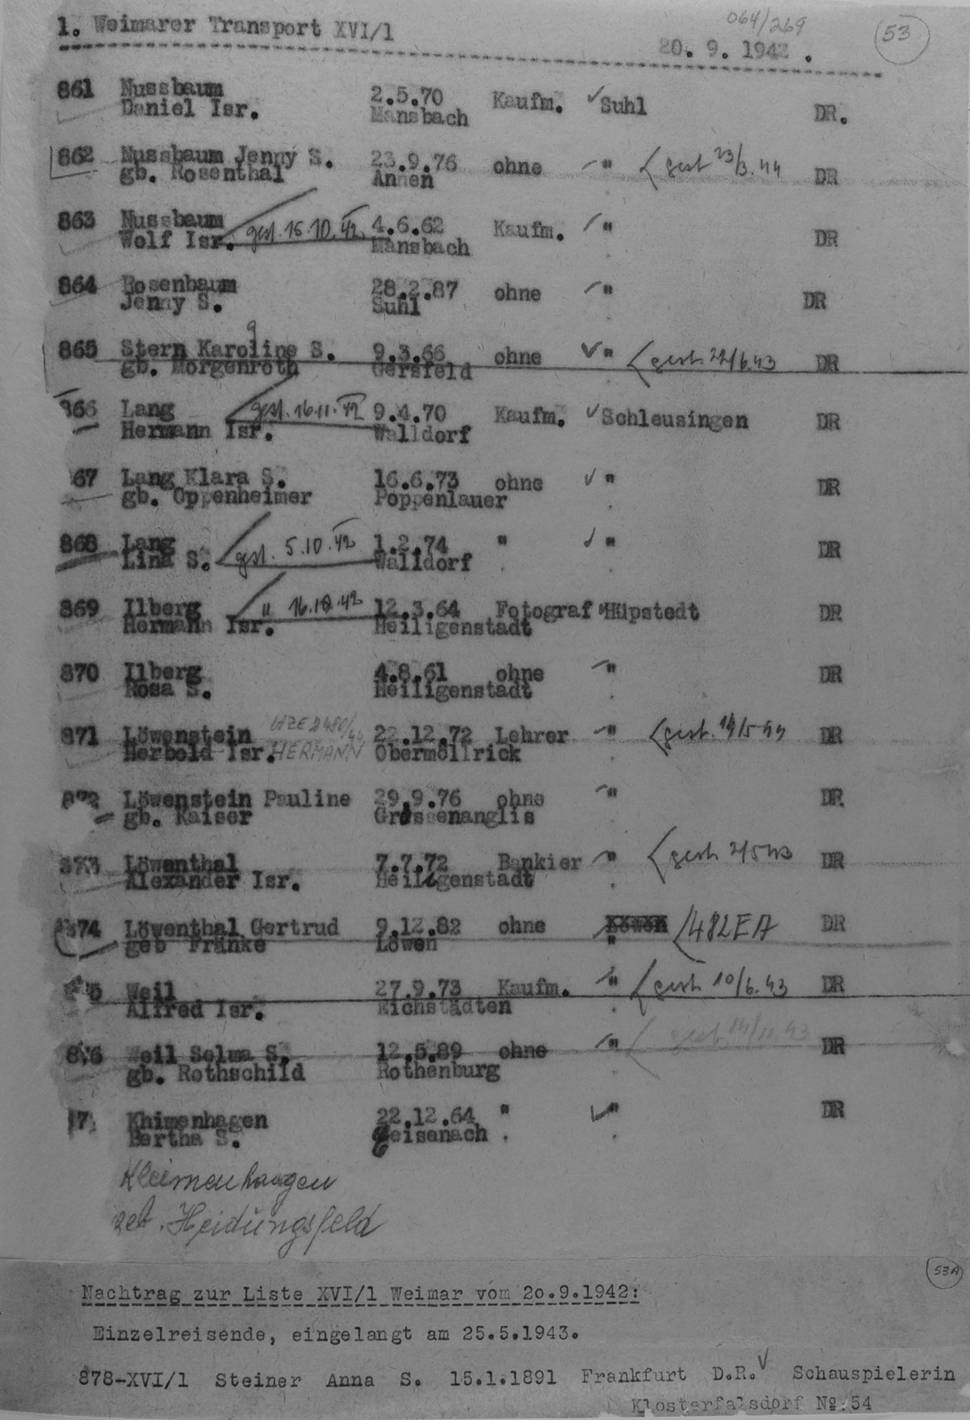 064/269
1. Weimarer Transport XVI/1 20. 9. 1942 . 53
861 Nussbaum 2.5.70 Kaufm. Suhl DR.
Daniel Isr. Mansbach
862 Nussbaum Jenny S. 23.9.76 ohne " gest 23/3.44 DR
gb. Rosenthal Annen
863 Nussbaum 4.6.62 Kaufm. " DR
Wolf Isr. gest. 15.10.42 Mansbach
864 Rosenbaum 28.2.87 ohne " DR
Jenny S. Suhl
865 Stern Karoline S. 9.3.66 ohne " gest 22/6.43 DR
gb. Morgenroth Gersfeld
866 Lang gest. 16.11.42 9.4.70 Kaufm. Schleusingen DR
Hermann Isr. Walldorf
67 Lang Klara S. 16.6.73 ohne " DR
gb. Oppenheimer Poppenlauer
868 Lang 1.2.74 " " DR
Lina S. gest. 5.10.42 Walldorf
869 Ilberg " 16.10.42 12.3.64 Fotograf "Hüpstedt DR
Hermann Isr. Heiligenstadt
870 Ilberg 4.8.61 ohne " DR
Rosa S. Heiligenstadt
871 Löwenstein 22.12.72 Lehrer " gest. 19/5 44 DR
Herbold Isr. HERMANN Obermöllrick
872 Löwenstein Pauline 29.9.76 ohne " DR
gb. Kaiser Grossenanglis
873 Löwenthal 7.7.72 Bankier " gest 2/5 43 DR
Alexander Isr. Heiligenstadt
874 Löwenthal Gertrud 9.12.82 ohne /482EA DR
geb Franke Löwen "
5 Weil 27.9.73 Kaufm. " gest 10/6.43 DR
Alfred Isr. Eichstädten
876 Weil Selma S. 12.5.89 ohne " gest 14/11 43 DR
gb. Rothschild Rothenburg
7 Khimenhagen 22.12.64 " " DR
Bertha S. Geisenach .
Kleimenhaagen
geb. Heidungsfeld
53A
Nachtrag zur Liste XVI/1 Weimar vom 20.9.1942:
Einzelreisende, eingelangt am 25.5.1943.
878-XVI/1 Steiner Anna S. 15.1.1891 Frankfurt D.R. Schauspielerin
Klosterfalsdorf No.54